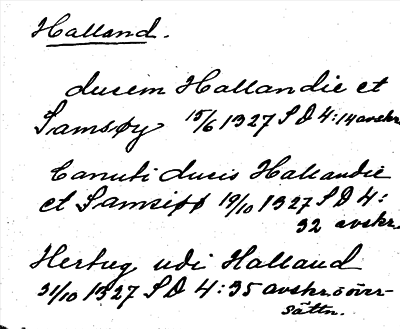 Halland.
ducem Hallandie et
Samsøy 15/6 1327 SD 4:14 avskr.
Canuti ducis Hallandie
et Samsiøø 19/10 1327 SD 4:
32 avskr.
Hertug udi Halland
31/10 1327 SD 4:35 avskr. o över-
sättn.